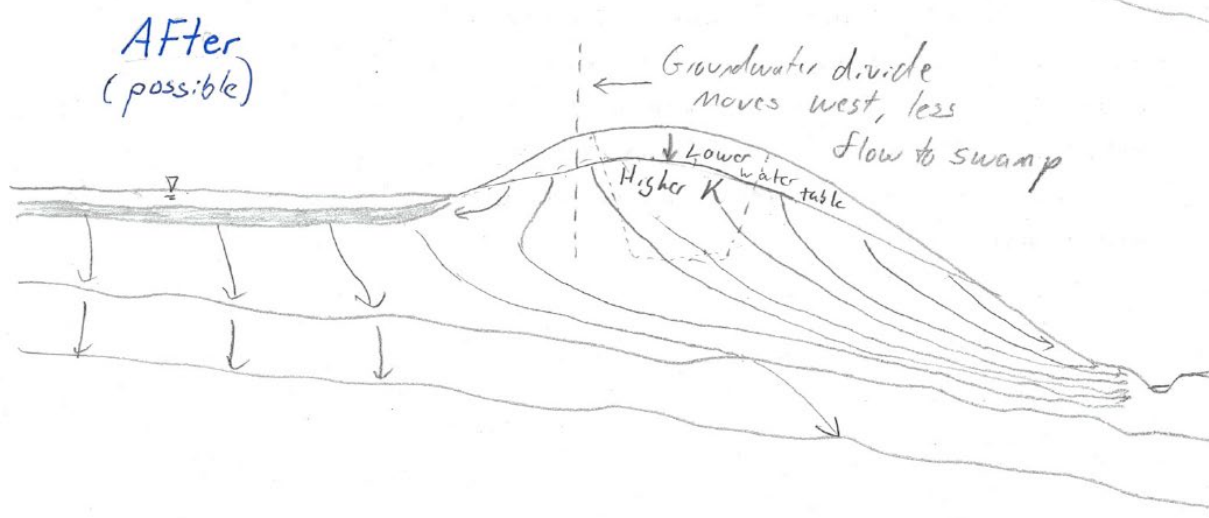 AFter
(possible)
Groundwater divide
moves west, less
flow to swamp
Lower
water
table
Higher K